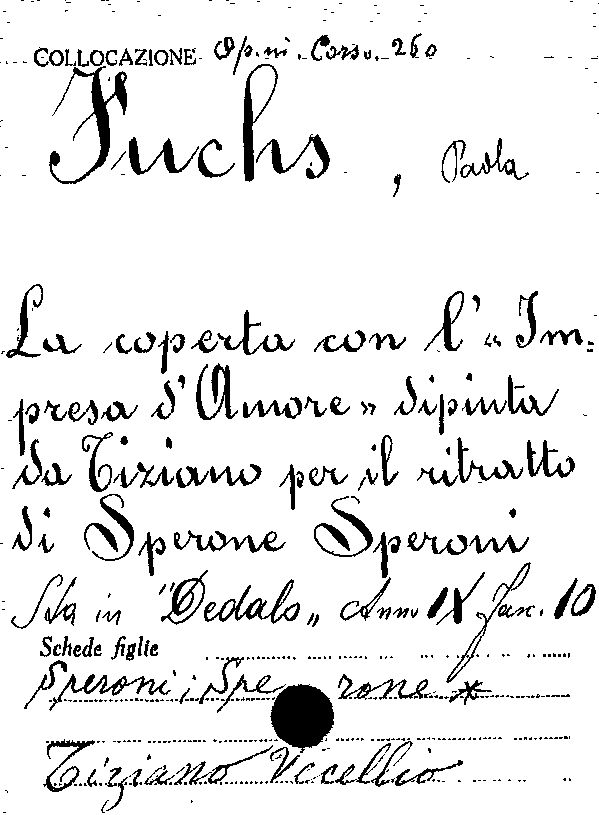 COLLOCAZIONE Op. ni. Corso. 260
Fuchs, Paola
La coperta con l'«Im=
presa d'Amore» dipinta
da Tiziano per il ritratto
di Sperone Speroni
Sta in "Dedalo„ Anno IX Fasc. 10
Schede figlie
Speroni; Spe rone *
Tiziano Vecellio